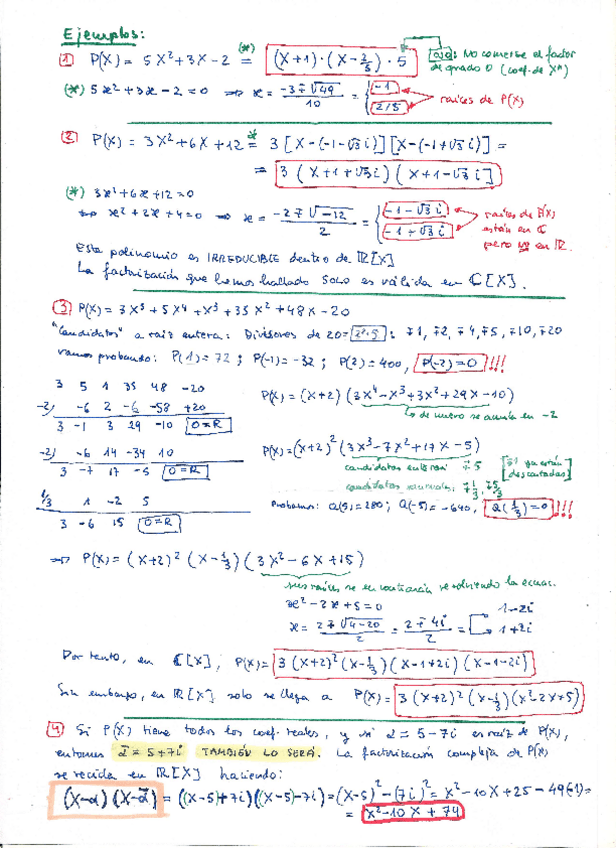 Ejemplos:
1 P(X) = 5X²+3X-2 (*)= (X+1)·(X-2/5)·5 OJO: No comerse el factor
de grado 0 (coef. de Xⁿ)
(*) 5x²+3x-2=0 ⇒ x = (-3∓√49)/10 = { -1 ; 2/5 raíces de P(X)
2 P(X) = 3X²+6X+12 *= 3[X-(-1-√3i)][X-(-1+√3i)] =
= 3(X+1+√3i)(X+1-√3i)
(*) 3x²+6x+12=0
⇔ x²+2x+4=0 ⇒ x = (-2∓√-12)/2 = { -1-√3i ; -1+√3i raíces de P(X) están en ℂ pero no en ℝ.
Este polinomio es IRREDUCIBLE dentro de ℝ[X]
La factorización que hemos hallado solo es válida en ℂ[X].
3 P(X) = 3X⁵+5X⁴+X³+35X²+48X-20
"Candidatos" a raíz entera: Divisores de 20=2²·5: ∓1, ∓2, ∓4, ∓5, ∓10, ∓20
vamos probando: P(1)=72; P(-1)=-32; P(2)=400, P(-2)=0!!!
3 5 1 35 48 -20
-2) -6 2 -6 -58 +20
3 -1 3 29 -10 0=R
P(X)=(X+2)(3X⁴-X³+3X²+29X-10)
de nuevo se anula en -2
-2) -6 14 -34 10
3 -7 17 -5 0=R
P(X)=(X+2)²(3X³-7X²+17X-5)
candidatos enteros: ∓5 [∓1 ya están descartadas]
candidatos racionales: ∓1/3, ∓5/3
1/3 1 -2 5
3 -6 15 0=R
Probamos: Q(5)=280; Q(-5)=-640, Q(1/3)=0!!!
⇒ P(X)=(X+2)²(X-1/3)(3X²-6X+15)
sus raíces se encontrarán resolviendo la ecuac.
x²-2x+5=0
x = (2∓√4-20)/2 = (2∓4i)/2 = 1-2i ; 1+2i
Por tanto, en ℂ[X], P(X)= 3(X+2)²(X-1/3)(X-1+2i)(X-1-2i)
Sin embargo, en ℝ[X] solo se llega a P(X)= 3(X+2)²(X-1/3)(X²-2X+5)
4 Si P(X) tiene todos los coef. reales, y si α=5-7i es raíz de P(X),
entonces ᾱ=5+7i TAMBIÉN LO SERÁ. La factorización compleja de P(X)
se recicla en ℝ[X] haciendo:
(X-α)(X-ᾱ) = ((X-5)+7i)((X-5)-7i)=(X-5)²-(7i)²=X²-10X+25-49(-1)=
= X²-10X+74